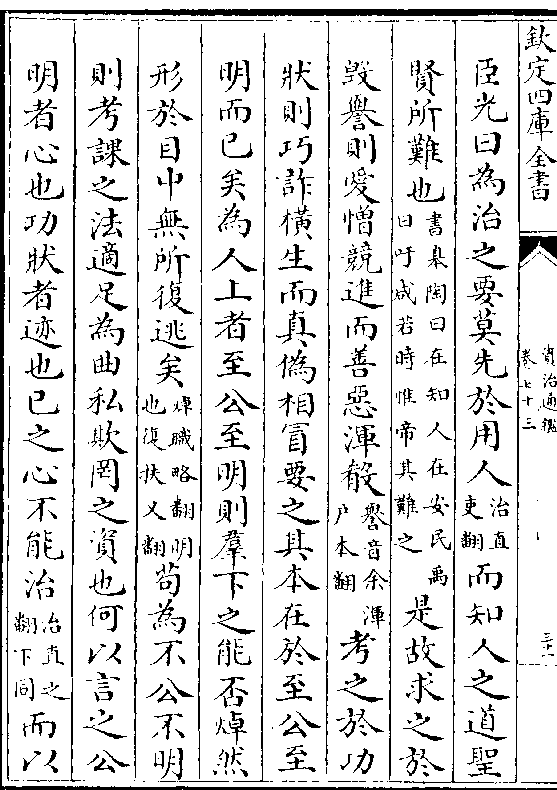 欽定四庫全書
資治通鑑
卷七十三
臣光曰為治之要莫先於用人治直吏翻而知人之道聖
賢所難也書臯陶曰在知人在安民禹曰吁咸若時惟帝其難之是故求之於
毁譽則愛憎競進而善惡渾殽譽音余渾戶本翻考之於功
狀則巧詐橫生而真偽相冒要之其本在於至公至
明而已矣為人上者至公至明則羣下之能否焯然
形於目中無所復逃矣焯職略翻明也復扶又翻苟為不公不明
則考課之法適足為曲私欺罔之資也何以言之公
明者心也功狀者迹也已之心不能治治直之翻下同而以